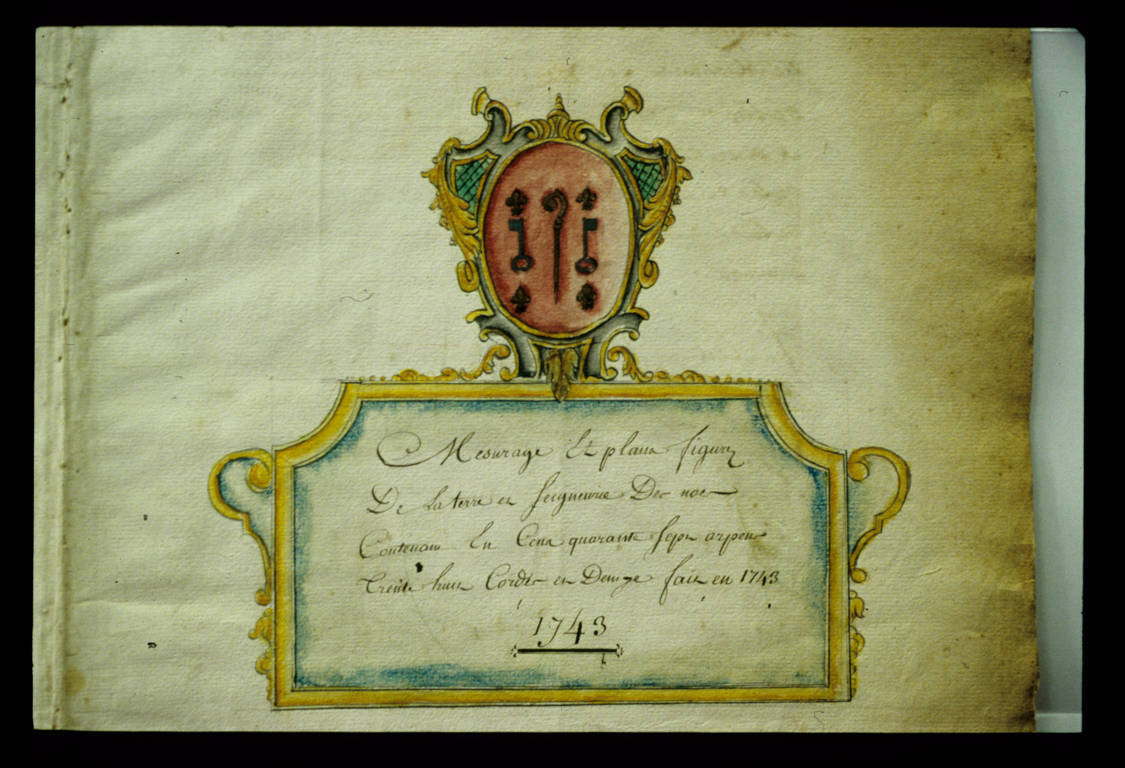 Mesurage Et plans figuré
De La terre et Seigneurie Des noes
Contenant En Cent quarante Sept arpens
trente huit Cordes et Demye fait en 1743
1743